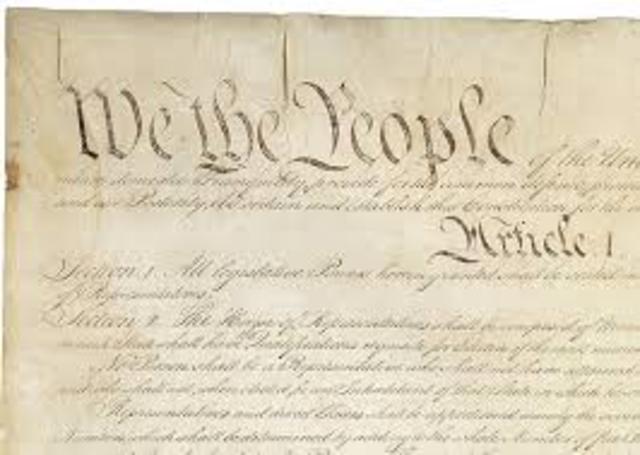 We the People of the Un
insure domestic Tranquility, provide for the common defence, promo
and our Posterity, do ordain and establish this Constitution for the
Article 1.
Section 1. All legislative Powers herein granted shall be vested
of Representatives.
Section 2. The House of Representatives shall be composed of Mem
in each State shall have Qualifications requisite for Electors of the most num
No Person shall be a Representative who shall not have attained
and who shall not, when elected, be an Inhabitant of that State in which he
Representatives and direct Taxes shall be apportioned among the several
Numbers, which shall be determined by adding to the whole Number of free